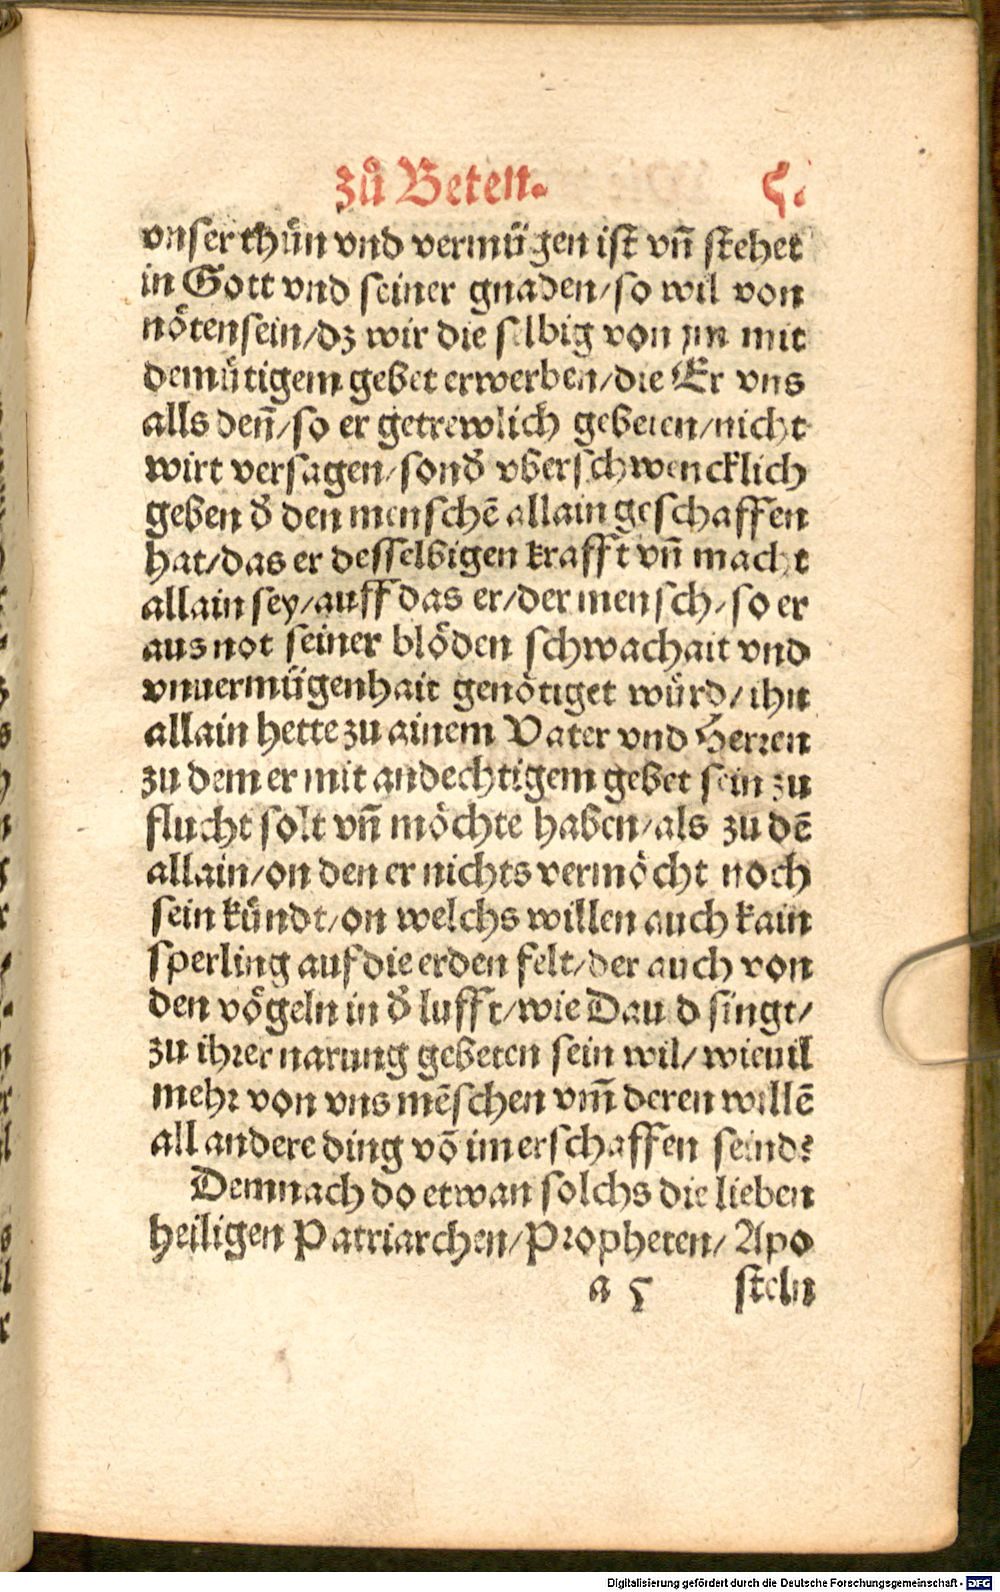 zů Beten. 5.
vnser thůn vnd vermügen ist vnd̄ stehet
in Gott vnd seiner gnaden/so wil von
nötensein/dz wir die selbig von jm mit
demütigem gebet erwerben/die Er vns
alls deñ/so er getrewlich gebeten/nicht
wirt versagen/sond' vberschwencklich
geben d' den menschē allain geschaffen
hat/das er desselbigen krafft vñ macht
allain sey/auff das er/der mensch/so er
aus not seiner blöden schwachait vnd
vnuermügenhait genötiget würd/ihn
allain hette zu ainem Vater vnd Herren
zu dem er mit andechtigem gebet sein zu
flucht solt vñ möchte haben/als zu dē
allain/on den er nichts vermöcht noch
sein kündt/on welchs willen auch kain
sperling auf die erden felt/der auch von
den vögeln in d' lufft/wie Dauid singt/
zu ihrer narung gebeten sein wil/wieuil
mehr von vns mēschen vm̄ deren willē
all andere ding vō im erschaffen seind?
Demnach do etwan solchs die lieben
heiligen Patriarchen/Propheten/Apo
a 5 steln
Digitalisierung gefördert durch die Deutsche Forschungsgemeinschaft - DFG